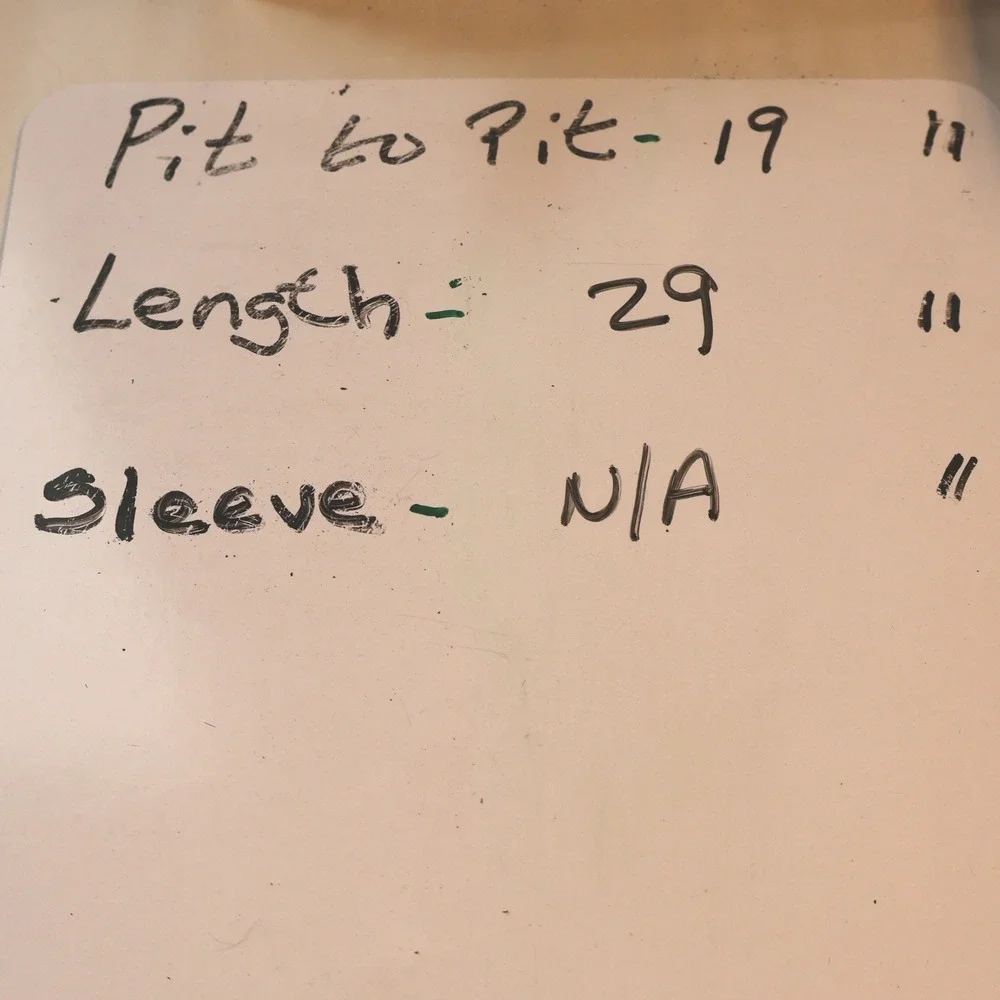 Pit to Pit - 19 "
Length - 29 "
Sleeve - N/A "